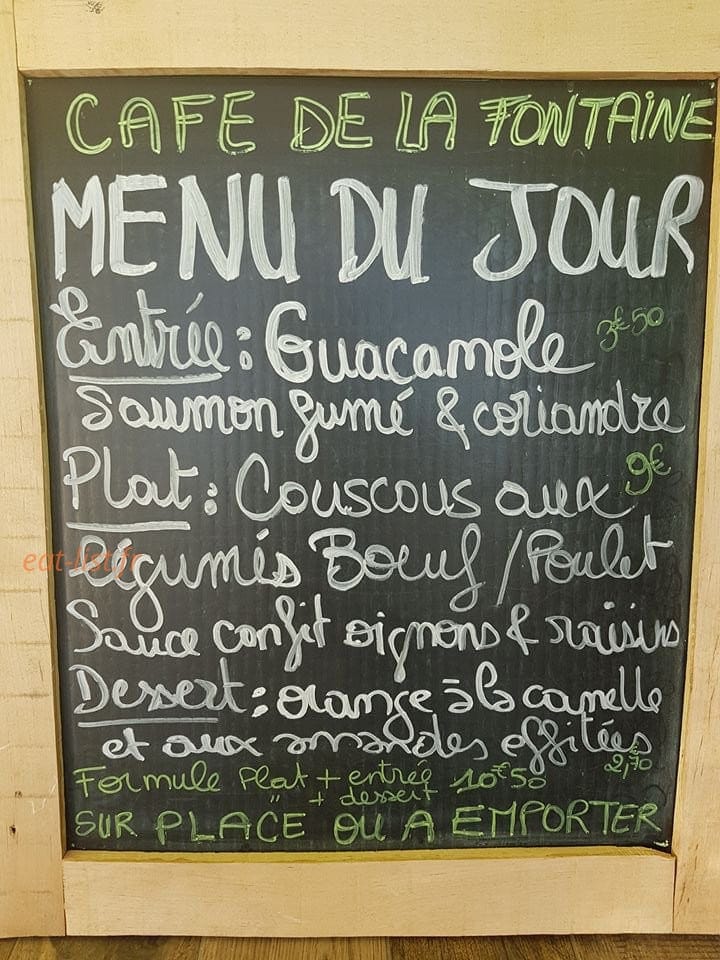 CAFE DE LA FONTAINE
MENU DU JOUR
Entrée : Guacamole 3€50
Saumon fumé & coriandre
Plat : Couscous aux 9€
légumes Boeuf / Poulet
eat-list.fr
Sauce confit oignons & raisins
Dessert : orange à la canelle
et aux amandes effilées
2,70€
Formule Plat + entrée 10€50
" + dessert
SUR PLACE OU A EMPORTER